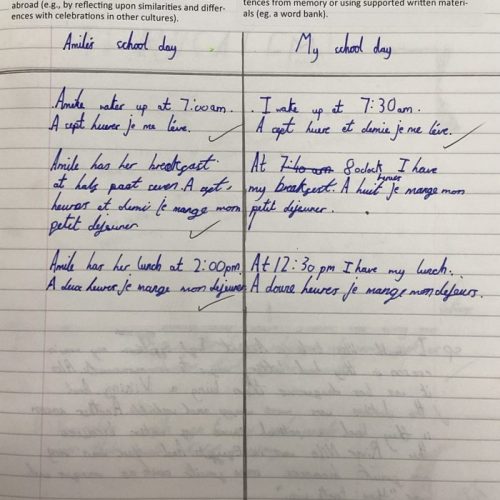 abroad (e.g., by reflecting upon similarities and differ-
ences with celebrations in other cultures).
tences from memory or using supported written materi-
als (eg. a word bank).
Amilie's school day
My school day
Amilie wakes up at 7:00am.
A sept heures je me lève.
I wake up at 7:30am.
A sept heure et demie je me lève.
Amilie has her breckfast
at hals past seven. A sept
heures et demi je mange mon
petit dejeuner
At 7:40 am 8 oclock I have
my breakfast. A huit heures je mange mon
petit dejeuner.
Amilie has her lunch at 2:00pm.
A deux heures je mange mon dejeuner
At 12:30pm I have my lunch.
A douze heures je mange mon dejeurs.